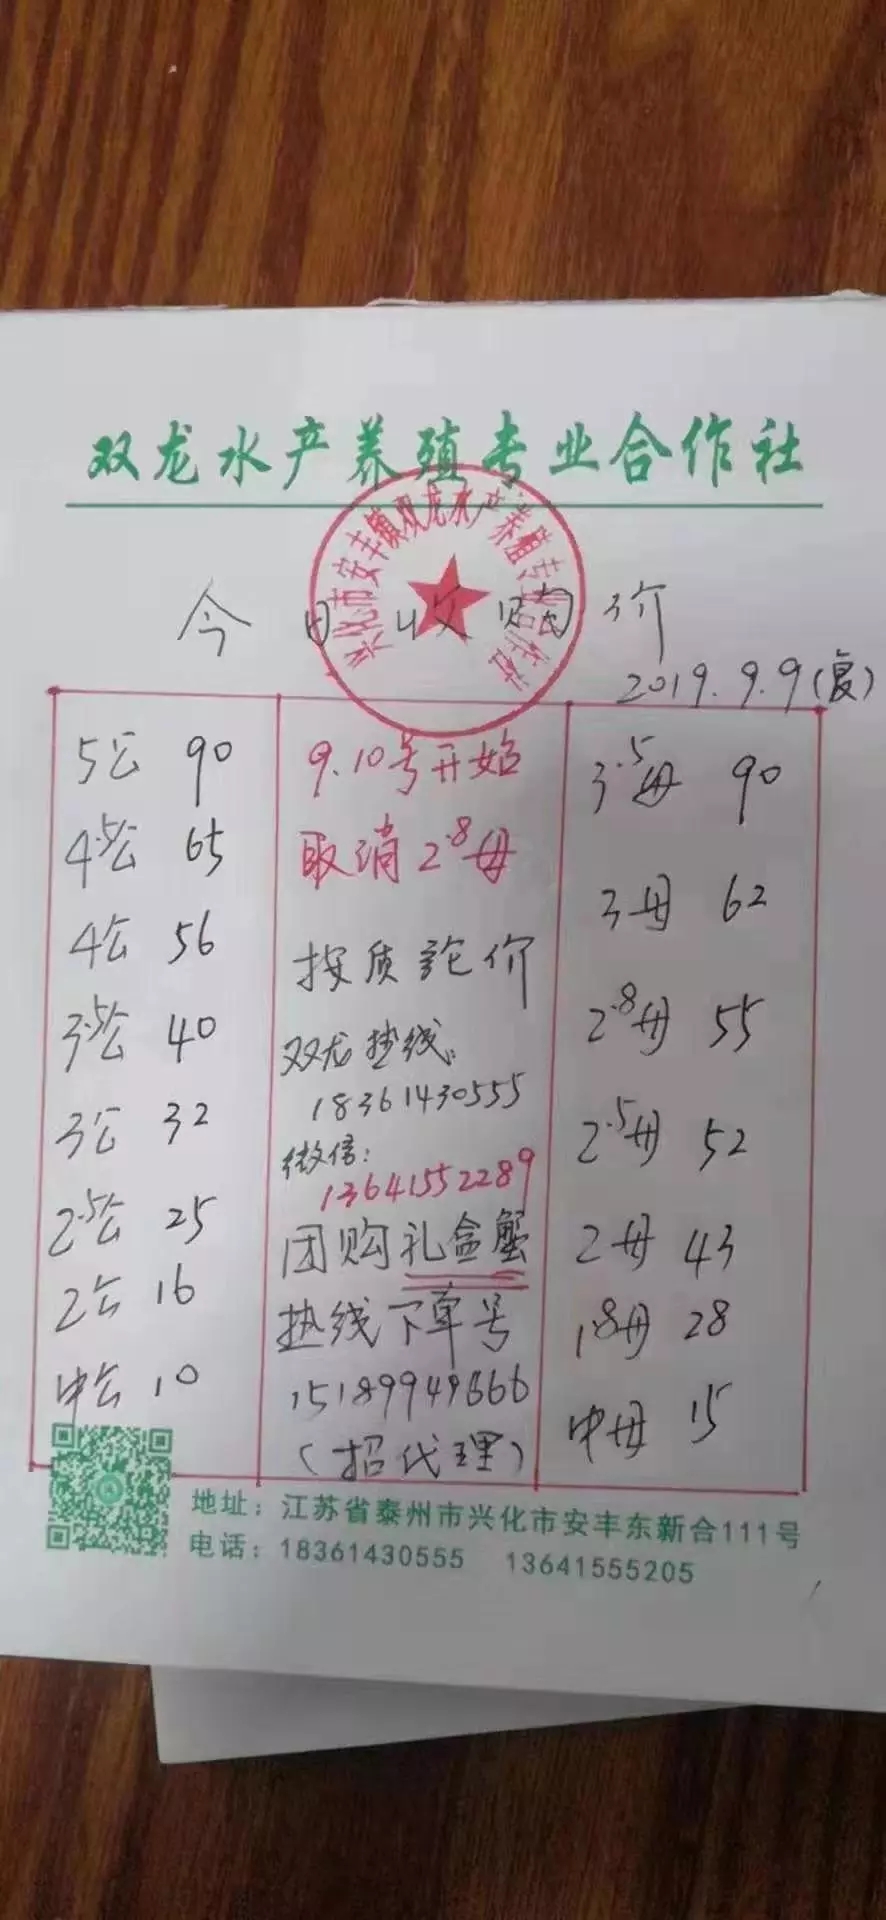 双龙水产养殖专业合作社
兴化市安丰镇双龙水产养殖专业合作社
今日收购价
2019.9.9(复)
5公 90
4.5公 65
4公 56
3.5公 40
3公 32
2.5公 25
2公 16
中公 10
9.10号开始
取消2.8母
按质论价
双龙热线:
18361430555
微信:
13641552289
团购礼盒蟹
热线下单号
15189949666
(招代理)
3.5母 90
3母 62
2.8母 55
2.5母 52
2母 43
1.8母 28
中母 15
地址:江苏省泰州市兴化市安丰东新合111号
电话:18361430555 13641555205